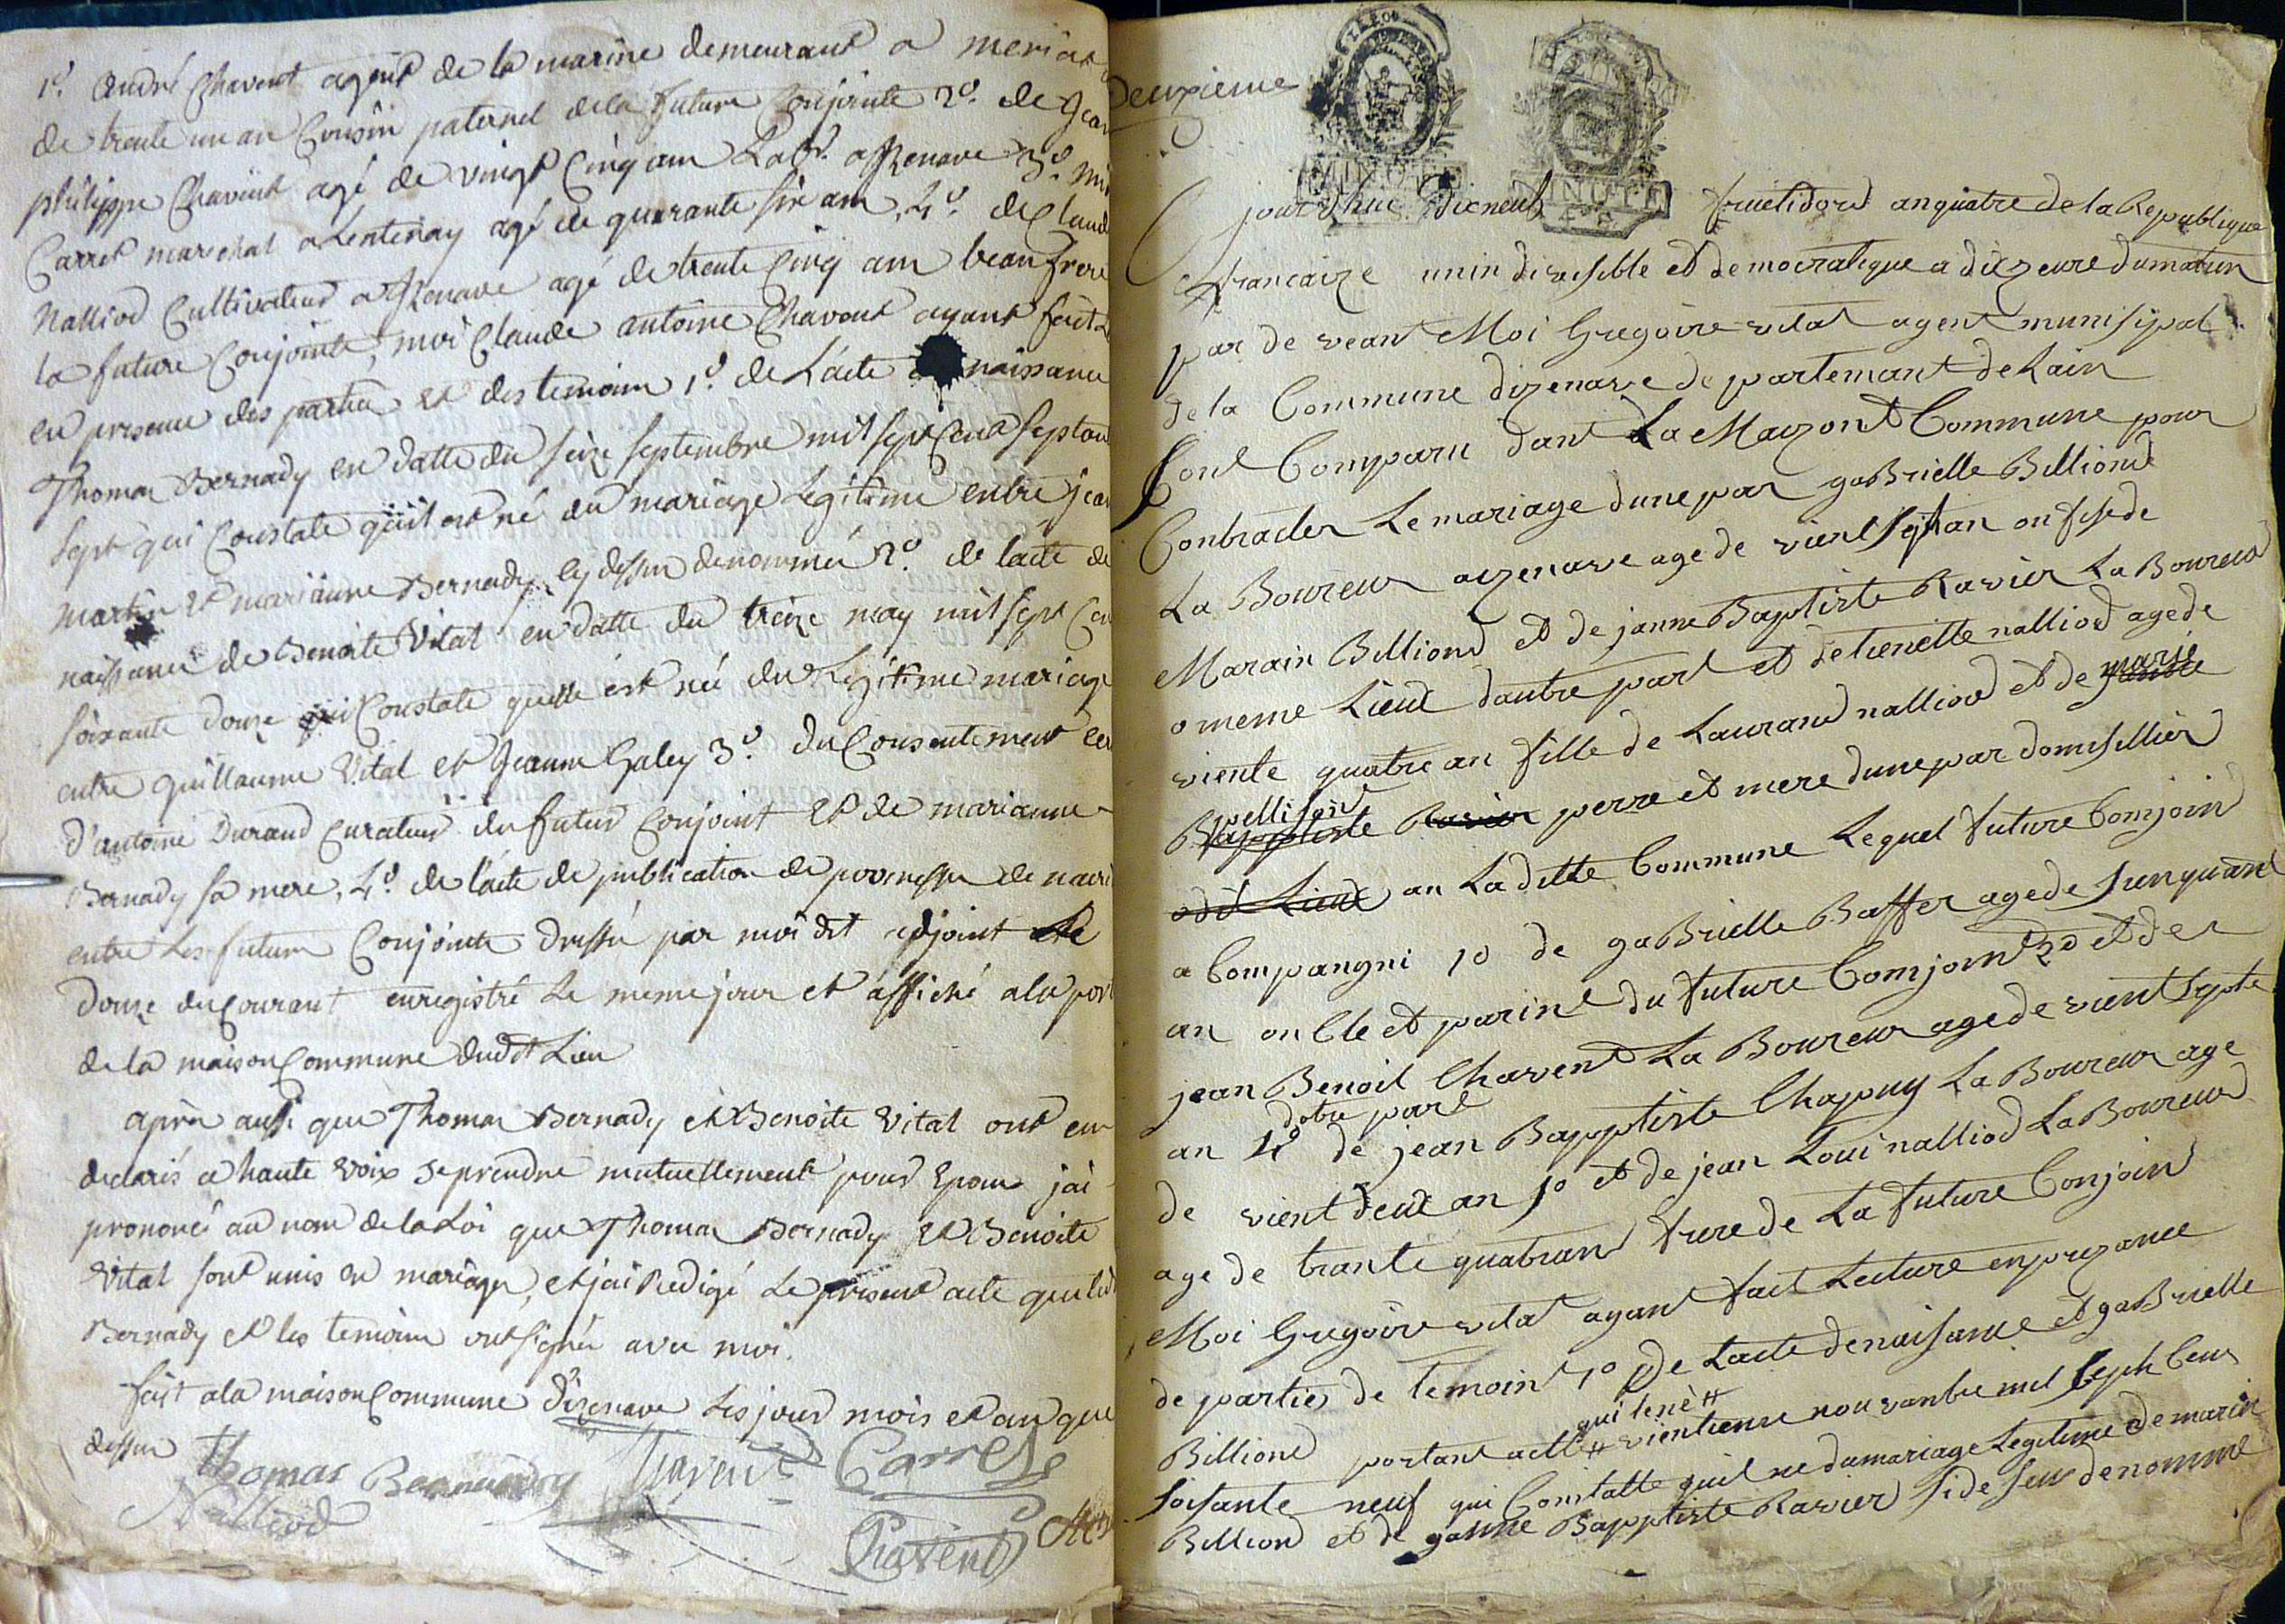 1º. André Chavent agent de la marine demeurant a meriat
de trente un an Cousin paternel dela future Conjointe 2º. de Jean
philippe Chavent agé de vingt Cinq ans Labr. a Izenave 3º.
Carret marechal a Lentenay agé de quarante six ans, 4º. de Claude
Nalliod Cultivateur a Izenave agé de trente Cinq ans beau frere
la future Conjointe, moi Claude antoine Chavent ayant fait
en presence des parties et des temoins 1º. de L'acte naissance
Thomas Bernady en datte du seize septembre mil sept Cent septante
sept qui Constate qu'il est né du mariage Legitime entre jean
martin et marianne Bernady cy dessus denommés 2º. de lacte de
naissance de Benoite Vital en datte du treize may mil sept Cent
soixante douze qui Constate quelle est née du Légitime mariage
entre guillaume Vital et Jeanne Galey 3º. du Consentement
d'antoine Durand Curateur du futur Conjoint et de marianne
Bernady sa mere, 4º. de l'acte de publication de promesse de
entre Les futurs Conjoints dressé par moi dit adjoint Le
douze du Courant enregistré Le meme jour et affiché ala porte
de la maison Commune dudt Lieu
après aussi que Thomas Bernady et Benoite Vital ont eu
declaré a haute voix se prendre mutuellement pour Epoux j'ai
prononcé au nom de la Loi que Thomas Bernady et Benoite
Vital sont unis en mariage, et j'ai Redigé Le present acte que ledt
Bernady et les temoins ont signé avec moi.
fait ala maison Commune d'izenave Les jour mois et an que
dessus Thomas Bernady Chavent Carret
Nalliod
Chavent
Deuxieme
MINUTE
MINUTE
jourdhuc dixneuf fruetidord an quatre de la Republique
francaize unin divisible et democratique a dix zeure dumatin
par de veant Moi Gregoire vital agent munisipal
de la Commune dizenave de partemant de Lain
sont Comparu dans La Maizont Commune pour
Contracter Le mariage dune par gaBrielle Billiond
La Boureur aizenave age de vient sept an on fis de
Marain Billiond et de janne Baptiste Ravier La Boureur
o meme Lieux dautre part et de tienette nalliod age de
viente quatre an fille de Laurand nalliod et de marie
pellison
Bapptiste Ravier perre et mere dune par domisillier
odit Lieux an La ditte Commune Lequel future Comjoin
a Compangni 1º de gaBrielle Baffer age de sinquant
an oncle et parint du future Comjoint 2º et de
jean Benoit Chavent La Boureur age de vient septe
dotre part
an 4º de jean Bapptiste Chapuy La Boureur age
de vient deux an 1º et de jean Loui nalliod LaBoureur
age de trante quatran frere de La future Conjoin
Moi Gregoire vital ayant fait Lecture en prezance
de partiés de temoint 1º de Lacte de naisance et gaBrielle
qui tené #
Billiond portant acte # vientienne nouvanbre mil seph Cens
soisante neuf qui Constatte quil ne du mariage Legitime de marin
Billiond et de ganne Bapptiste Ravier side seus denommé